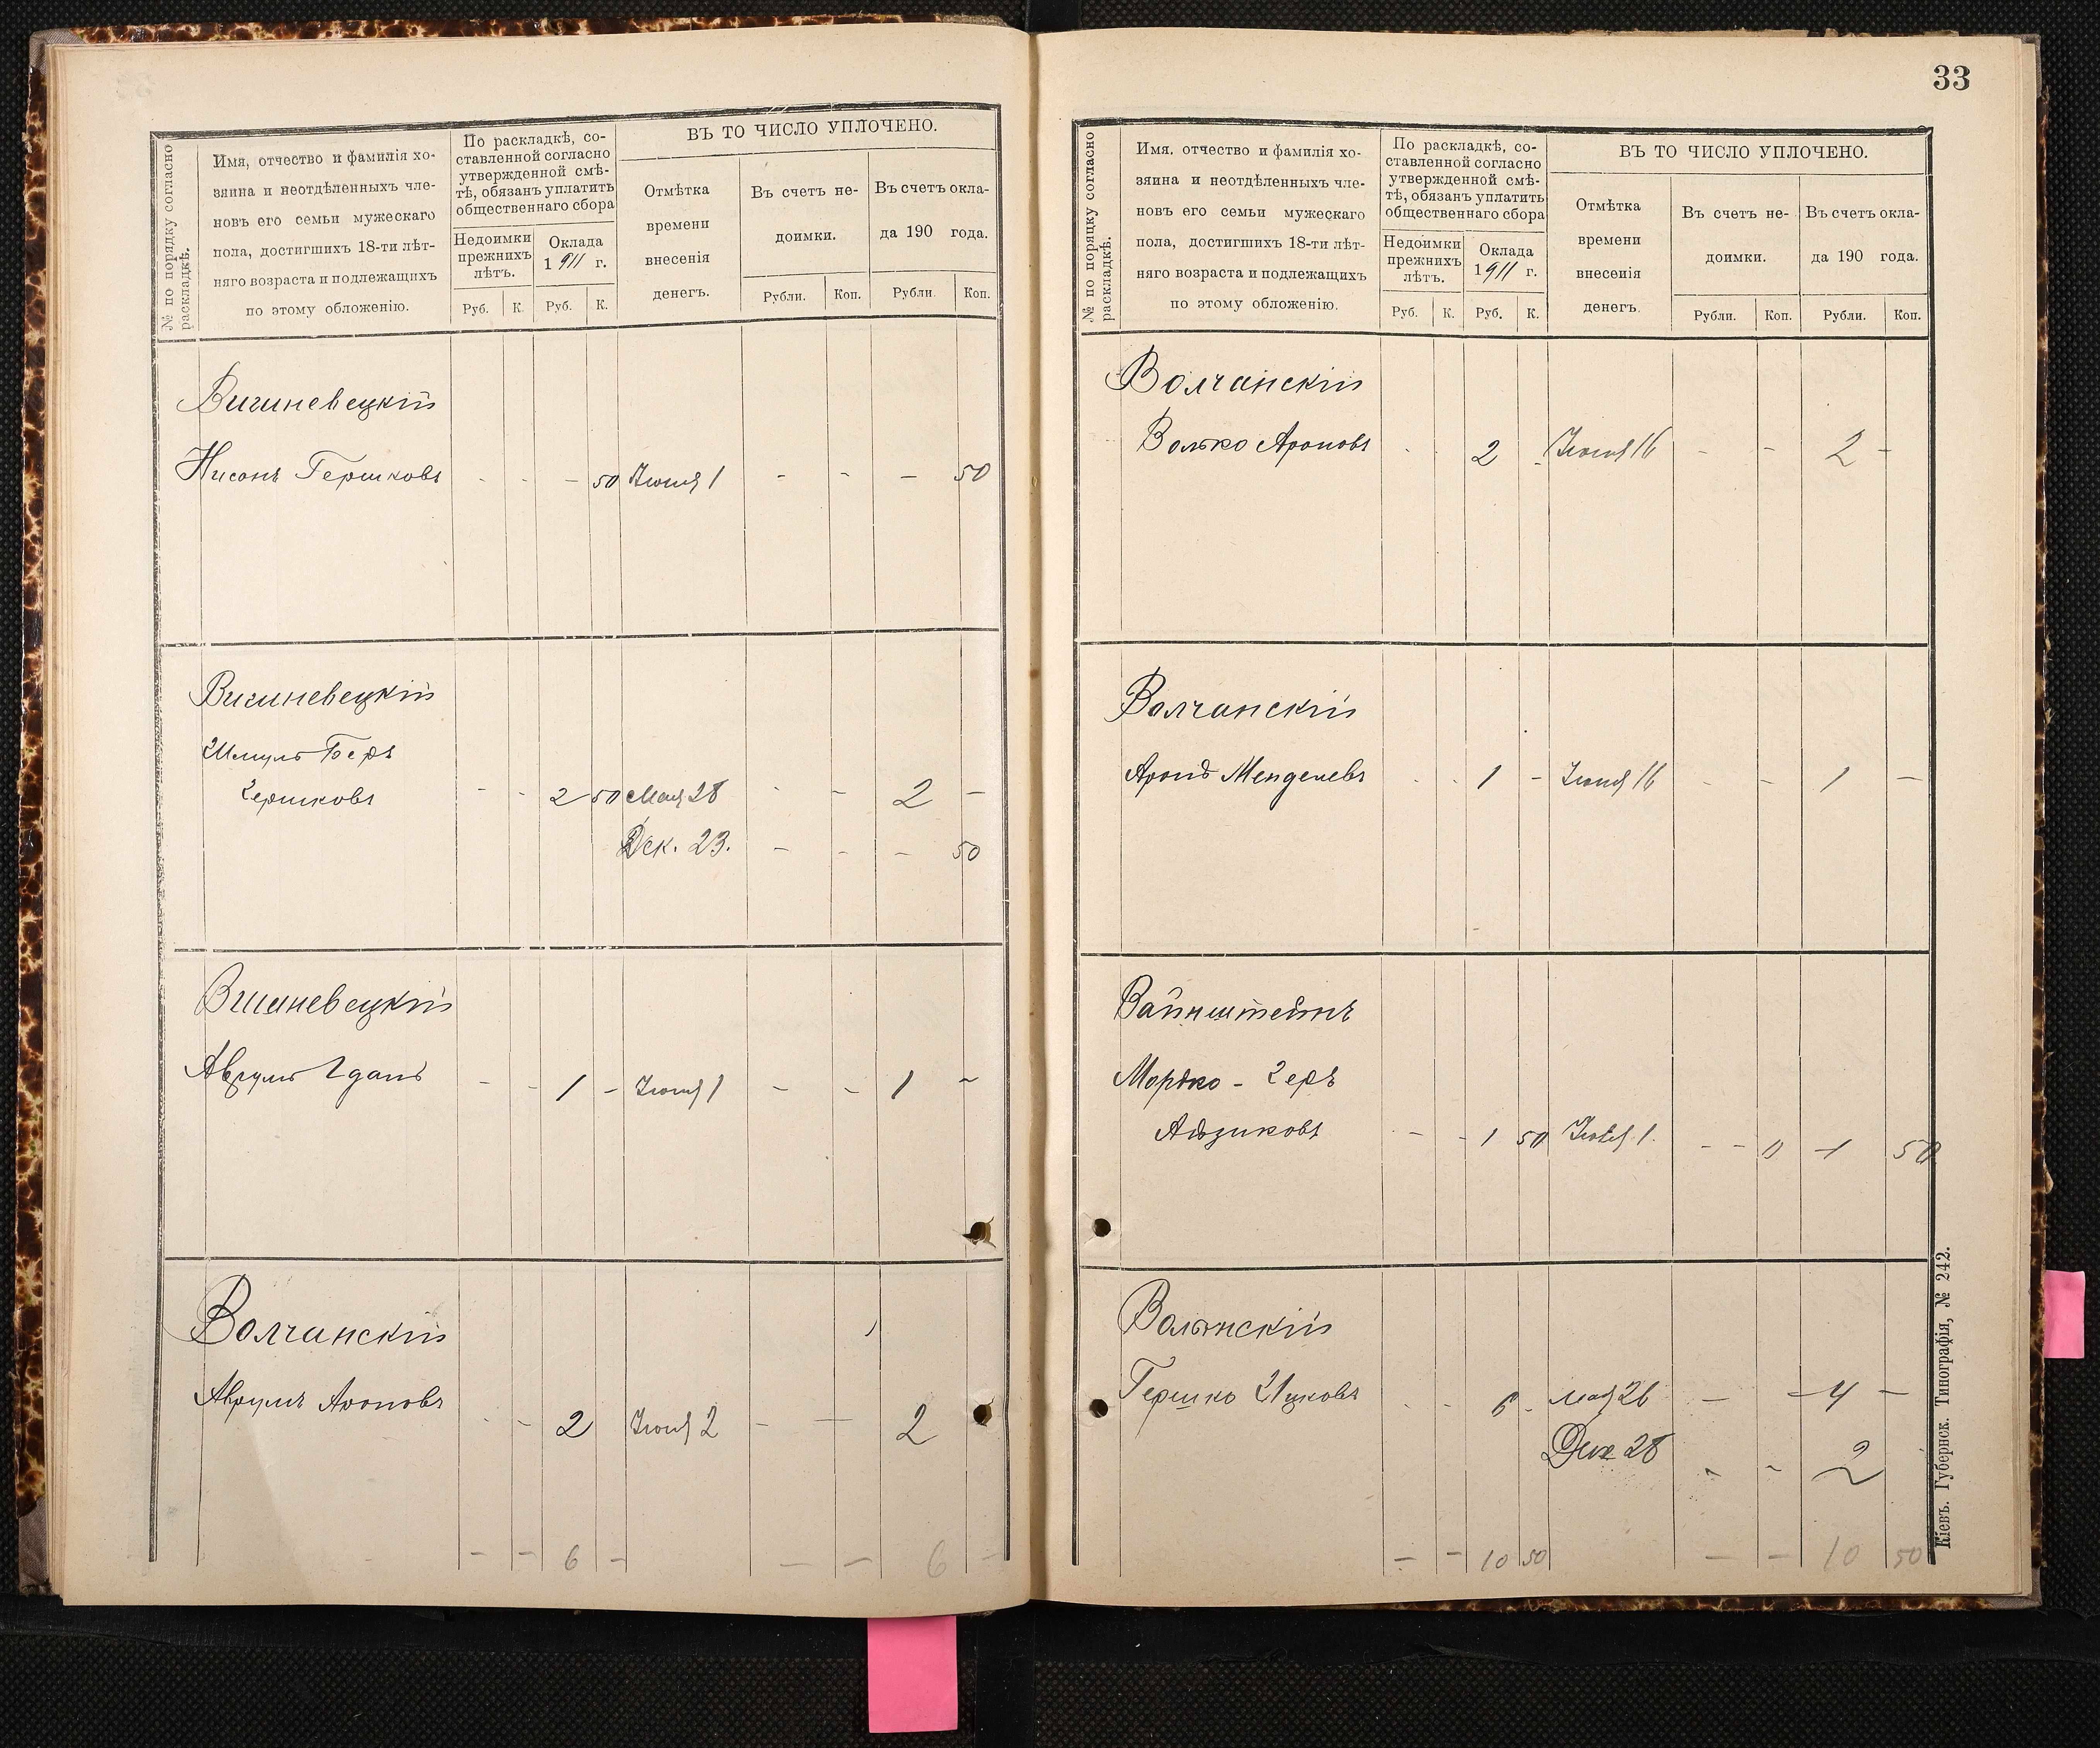 № по порядку согласно раскладкѣ.
Имя, отчество и фамилія хо-
зяина и неотдѣленныхъ чле-
новъ его семьи мужескаго
пола, достигшихъ 18-ти лѣт-
няго возраста и подлежащихъ
по этому обложенію.
По раскладкѣ, со-
ставленной согласно
утвержденной смѣ-
тѣ, обязанъ уплатить
общественнаго сбора
Недоимки
прежнихъ
лѣтъ.
Оклада
1911 г.
Руб. К. Руб. К.
ВЪ ТО ЧИСЛО УПЛОЧЕНО.
Отмѣтка
времени
внесенія
денегъ.
Въ счетъ не-
доимки.
Въ счетъ окла-
да 190 года.
Рубли. Коп. Рубли. Коп.
Вишневецкій
Нисонъ Гершковъ - - - 50 Іюня 1 - - - 50
Вишневецкій
Шмуль Беръ
Гершковъ - - 2 50 Мая 28 - - 2 -
Дек. 23. - - - 50
Вишневецкій
Аврумъ Іданъ - - 1 - Іюня 1 - - 1 -
Волчанскій
Аврумъ Ароновъ - - 2 Іюня 2 - - 2
- - 6 - - - 6 -
33
№ по порядку согласно раскладкѣ.
Имя. отчество и фамилія хо-
зяина и неотдѣленныхъ чле-
новъ его семьи мужескаго
пола, достигшихъ 18-ти лѣт-
няго возраста и подлежащихъ
по этому обложенію.
По раскладкѣ, со-
ставленной согласно
утвержденной смѣ-
тѣ, обязанъ уплатить
общественнаго сбора
Недоимки
прежнихъ
лѣтъ.
Оклада
1911 г.
Руб. К. Руб. К.
ВЪ ТО ЧИСЛО УПЛОЧЕНО.
Отмѣтка
времени
внесенія
денегъ.
Въ счетъ не-
доимки.
Въ счетъ окла-
да 190 года.
Рубли. Коп. Рубли. Коп.
Волчанскій
Волько Ароновъ - - 2 - Іюня 16 - - 2 -
Волчанскій
Аронъ Менделевъ - - 1 - Іюня 16 - - 1 -
Вайнштейнъ
Мордко - Геръ
Айзиковъ - - 1 50 1. - - 1 50
Вольнскій
Гершко Ицковъ - - 6 - Мая 26 - - 4 -
Дек 28 - - 2
- - 10 50 - - 10 50
Кіевъ. Губернск. Типографія, № 242.